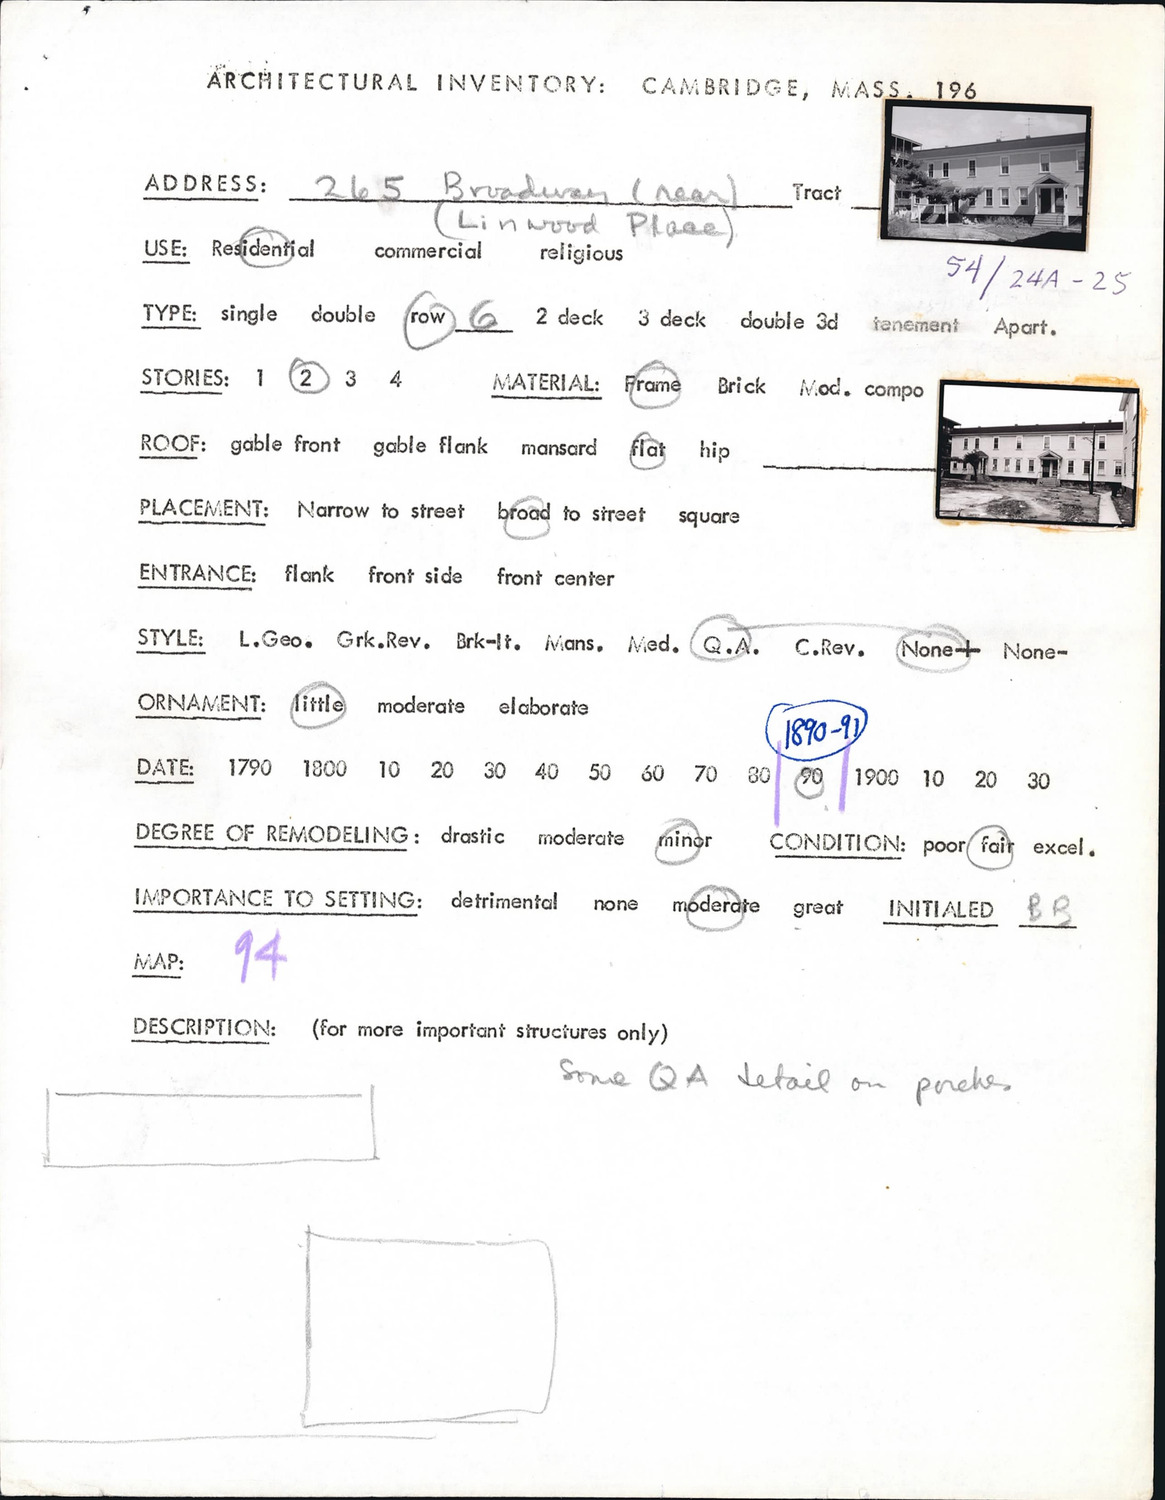 ARCHITECTURAL INVENTORY: CAMBRIDGE, MASS. 196
ADDRESS: 265 Broadway (rear) Tract
(Linwood Place)
54/24A-25
USE: Residential commercial religious
TYPE: single double row 6 2 deck 3 deck double 3d tenement Apart.
STORIES: 1 2 3 4 MATERIAL: Frame Brick Mod. compo
ROOF: gable front gable flank mansard flat hip
PLACEMENT: Narrow to street broad to street square
ENTRANCE: flank front side front center
STYLE: L.Geo. Grk.Rev. Brk-It. Mans. Med. Q.A. C.Rev. None+ None-
ORNAMENT: little moderate elaborate
1890-91
DATE: 1790 1800 10 20 30 40 50 60 70 80 90 1900 10 20 30
DEGREE OF REMODELING: drastic moderate minor CONDITION: poor fair excel.
IMPORTANCE TO SETTING: detrimental none moderate great INITIALED BB
MAP: 94
DESCRIPTION: (for more important structures only)
Some QA detail on porches